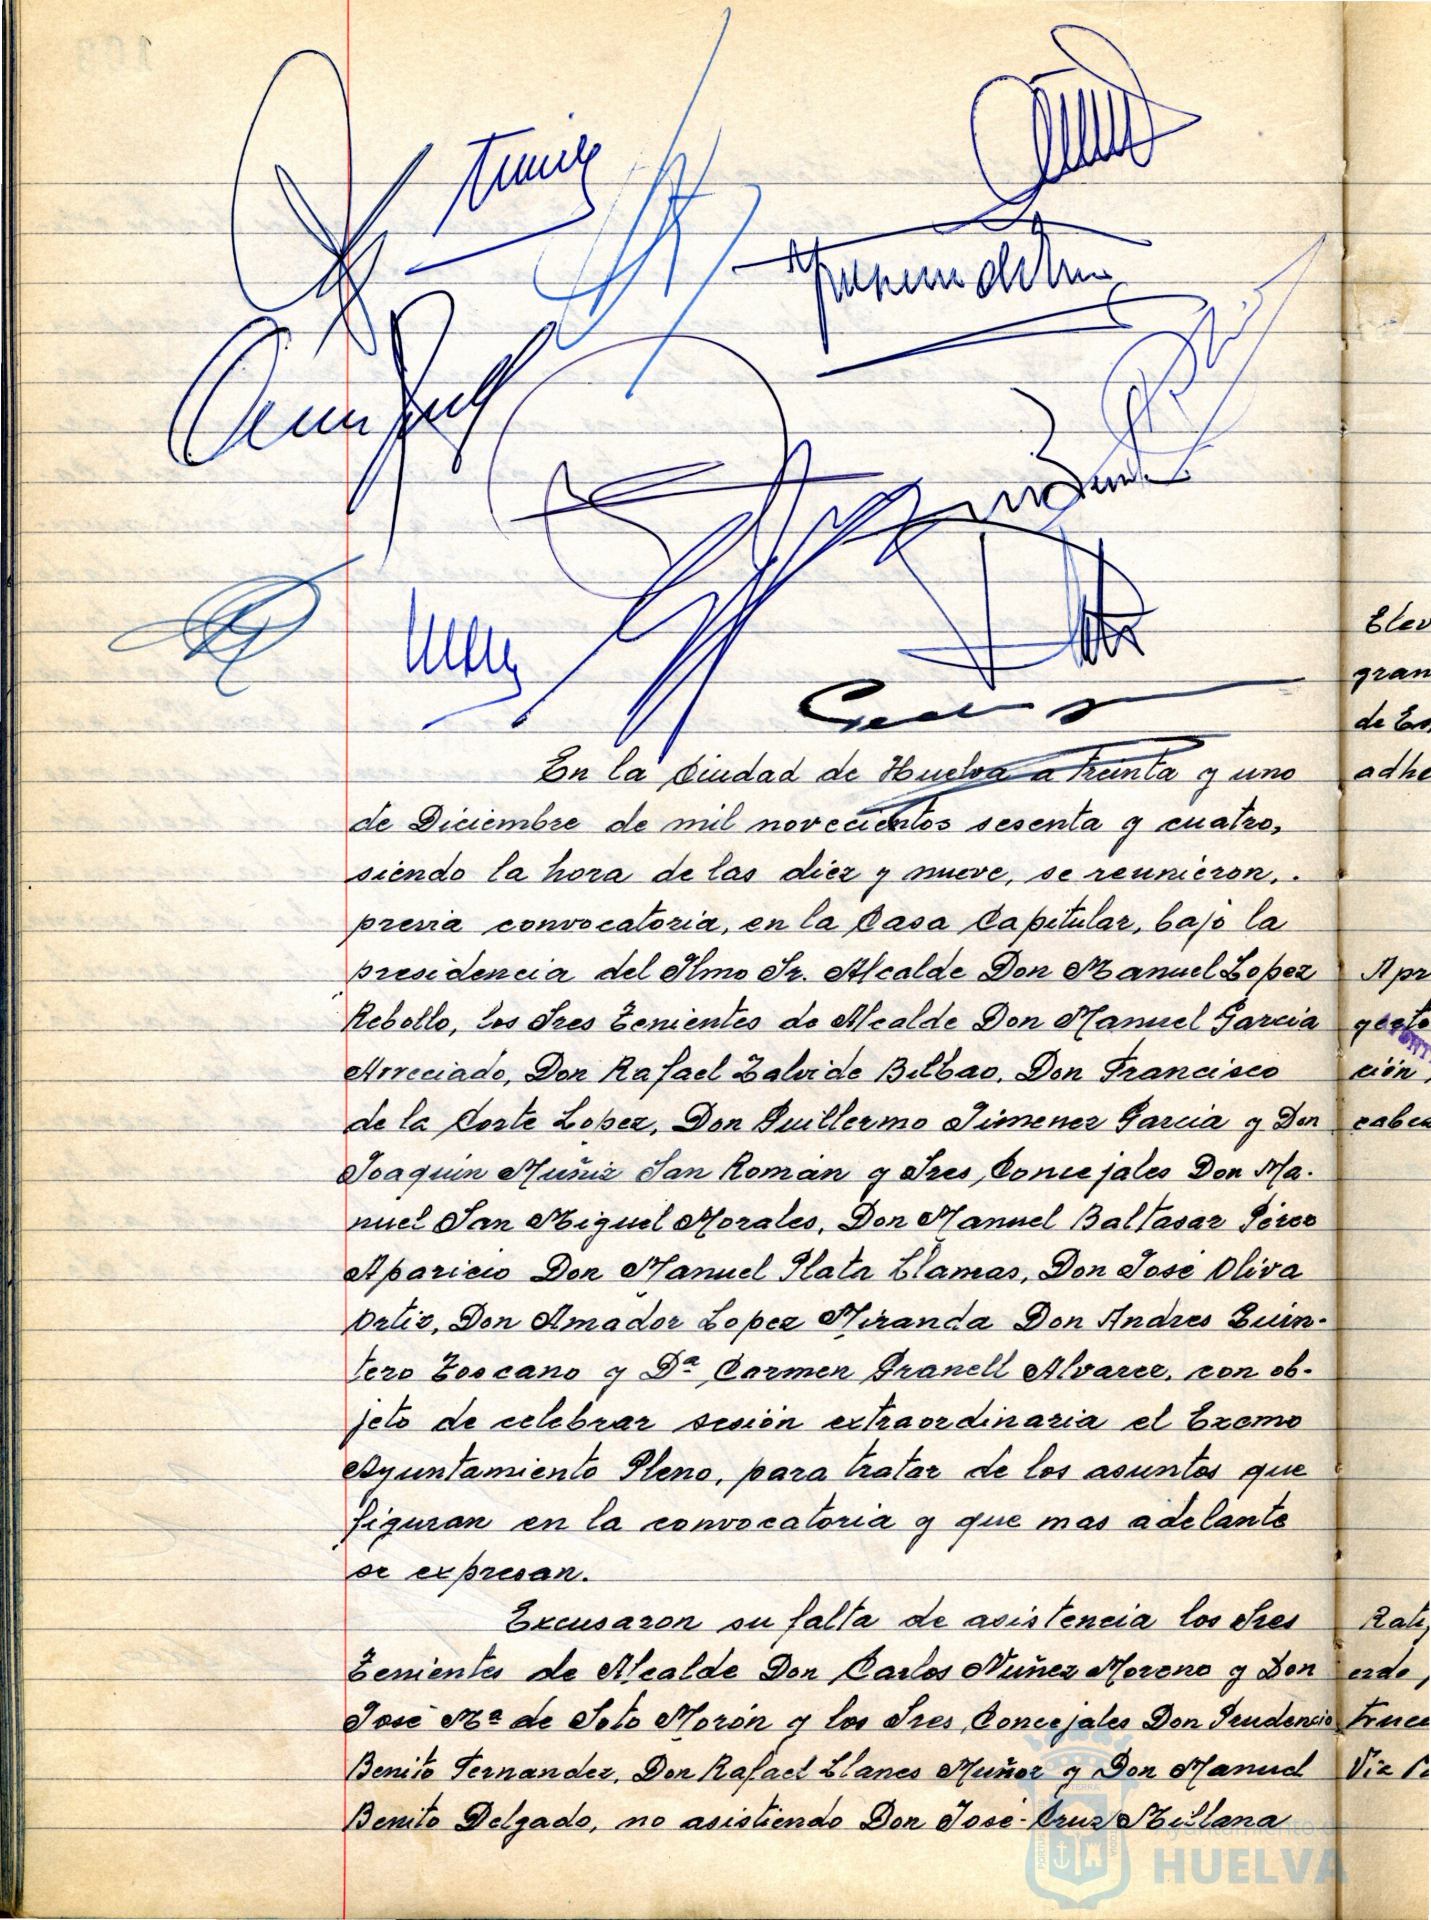 En la Ciudad de Huelva a treinta y uno
de Diciembre de mil novecientos sesenta y cuatro,
siendo la hora de las diez y nueve, se reunieron,.
previa convocatoria, en la Casa Capitular, bajo la
presidencia del Ilmo Sr. Alcalde Don Manuel Lopez
Rebollo, los Sres Tenientes de Alcalde Don Manuel Garcia
Arreciado, Don Rafael Zalvide Bilbao, Don Francisco
de la Corte Lopez, Don Guillermo Jimenez Garcia y Don
Joaquin Muñiz San Román y Sres, Concejales Don Ma-
nuel San Miguel Morales, Don Manuel Baltasar Pérez
Aparicio Don Manuel Plata Llamas, Don José Oliva
Ortiz, Don Amador Lopez Miranda Don Andres Quin-
tero Toscano y Dª Carmen Granell Alvarez, con ob-
jeto de celebrar sesión extraordinaria el Excmo
Ayuntamiento Pleno, para tratar de los asuntos que
figuran en la convocatoria y que mas adelante
se expresan.
Excusaron su falta de asistencia los Sres
Tenientes de Alcalde Don Carlos Nuñez Moreno y Don
José Mª de Soto Morón y los Sres, Concejales Don Prudencio
Benito Fernandez, Don Rafael Llanes Muñoz y Don Manuel
Benito Delgado, no asistiendo Don José Cruz Millana
Elev
gran
de
adhe
Apr
ción,
cabez
Rati
Ayuntamiento de
HUELVA